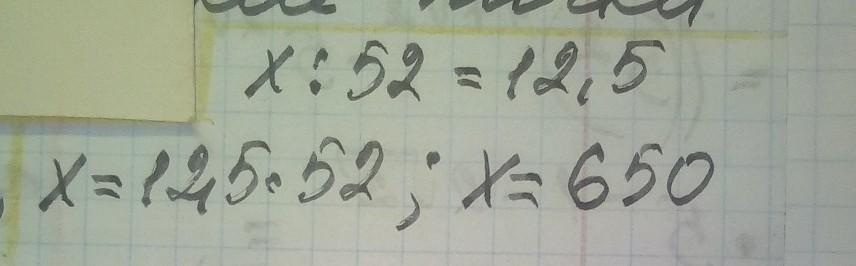 x : 52 = 12,5
x = 12,5 · 52 ; x = 650